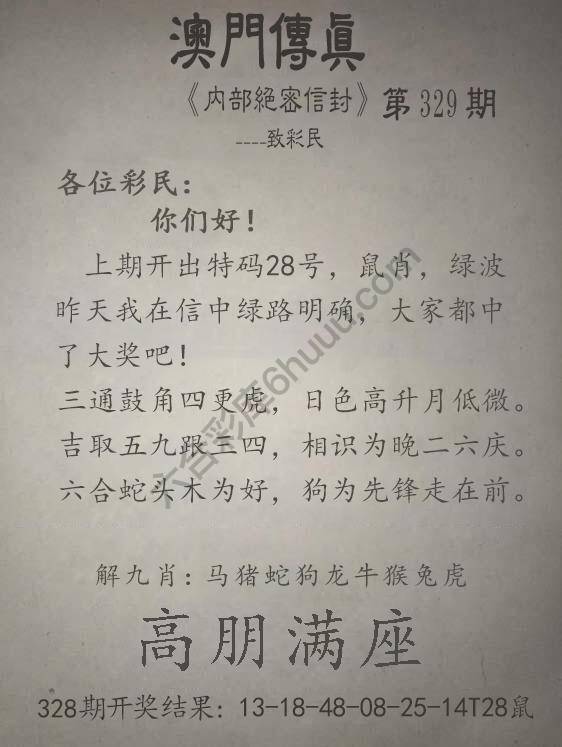 澳門傳真
《内部絕密信封》第329期
----致彩民
各位彩民：
你们好！
上期开出特码28号，鼠肖，绿波
昨天我在信中绿路明确，大家都中
了大奖吧！
三通鼓角四更虎，日色高升月低微。
吉取五九跟三四，相识为晚二六庆。
六合蛇头木为好，狗为先锋走在前。
六合彩库6huuu.com
解九肖：马猪蛇狗龙牛猴兔虎
高朋满座
328期开奖结果：13-18-48-08-25-14T28鼠